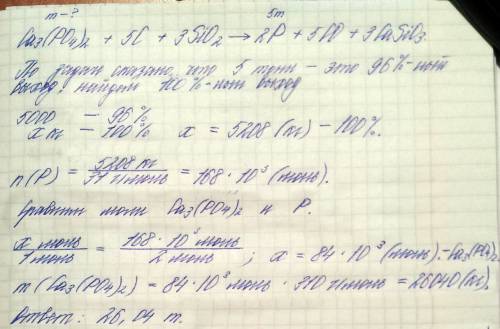 m-? 5т
Ca₃(PO₄)₂ + 5C + 3SiO₂ → 2P + 5CO + 3CaSiO₃
По задаче сказано, что 5 тонн - это 96%-ный
выход, найдем 100%-ный выход
5000 - 96%
x кг - 100% x = 5208 (кг) - 100%.
n(P) = 5208 кг / 31 г/моль = 168 · 10³ (моль).
Сравним моли Ca₃(PO₄)₂ и P.
x моль / 1 моль = 168 · 10³ моль / 2 моль ; x = 84 · 10³ (моль). - Ca₃(PO₄)₂
m(Ca₃(PO₄)₂) = 84 · 10³ моль · 310 г/моль = 26040 (кг).
Ответ: 26,04 т.